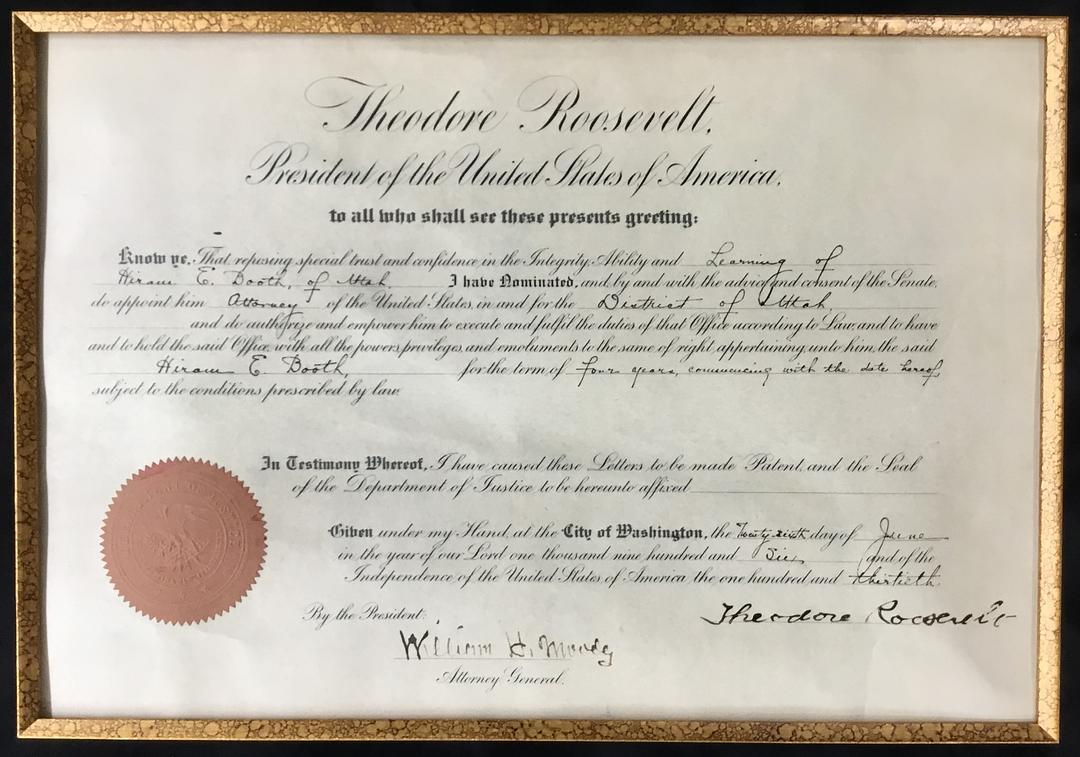 Theodore Roosevelt,
President of the United States of America,
to all who shall see these presents greeting:
Know ye, That reposing special trust and confidence in the Integrity, Ability and Learning of
Hiram E. Booth, of Utah, I have Nominated, and, by and with the advice and consent of the Senate,
do appoint him Attorney of the United States, in and for the District of Utah
and do authorize and empower him to execute and fulfil the duties of that Office according to Law, and to have
and to hold the said Office, with all the powers, privileges, and emoluments to the same of right appertaining, unto him, the said
Hiram E. Booth, for the term of four years, commencing with the date hereof,
subject to the conditions prescribed by law.
In Testimony Whereof, I have caused these Letters to be made Patent, and the Seal
of the Department of Justice to be hereunto affixed
Given under my Hand, at the City of Washington, the Twenty-sixth day of June
in the year of our Lord one thousand nine hundred and Six, and of the
Independence of the United States of America the one hundred and thirtieth.
By the President: Theodore Roosevelt
William H. Moody
Attorney General.